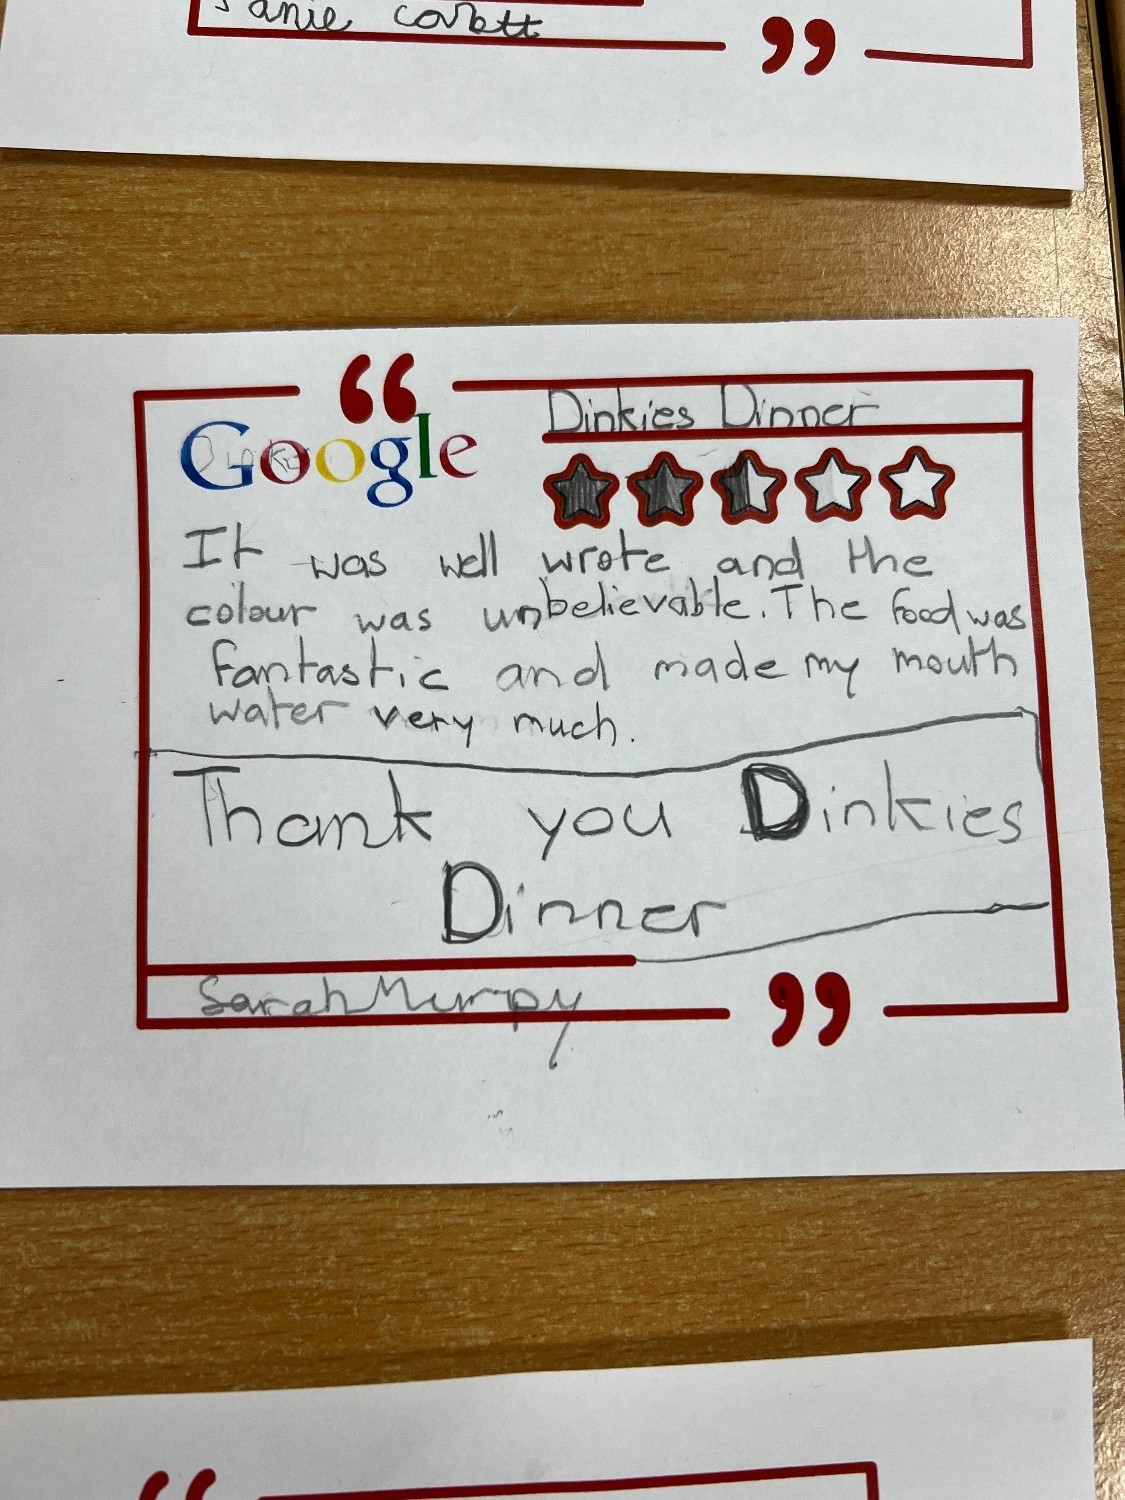 Janie corbett
Dinkies Dinner
Google
It was well wrote and the
colour was unbelievable. The food was
fantastic and made my mouth
water very much.
Thank you Dinkies
Dinner
Sarah Murpy